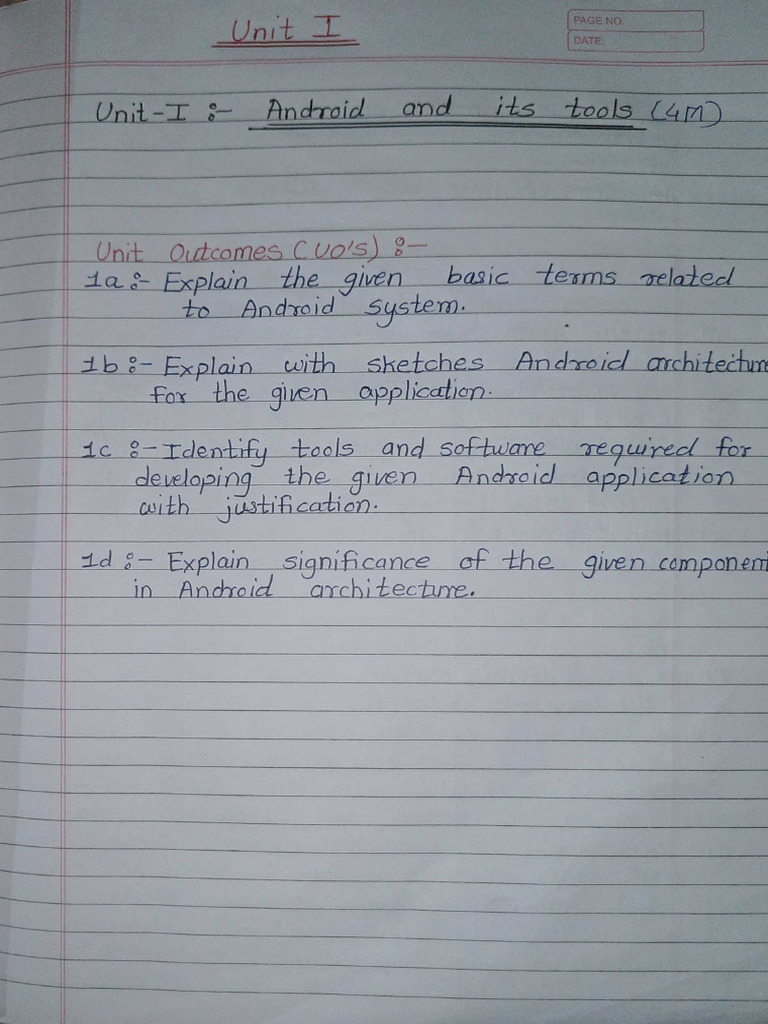 Unit I
PAGE NO.
DATE:
Unit-I :- Android and its tools (4M)
Unit Outcomes (UO's) :-
1a :- Explain the given basic terms related
to Android system.
1b :- Explain with sketches Android architecture
for the given application.
1c :- Identify tools and software required for
developing the given Android application
with justification.
1d :- Explain significance of the given component
in Android architecture.